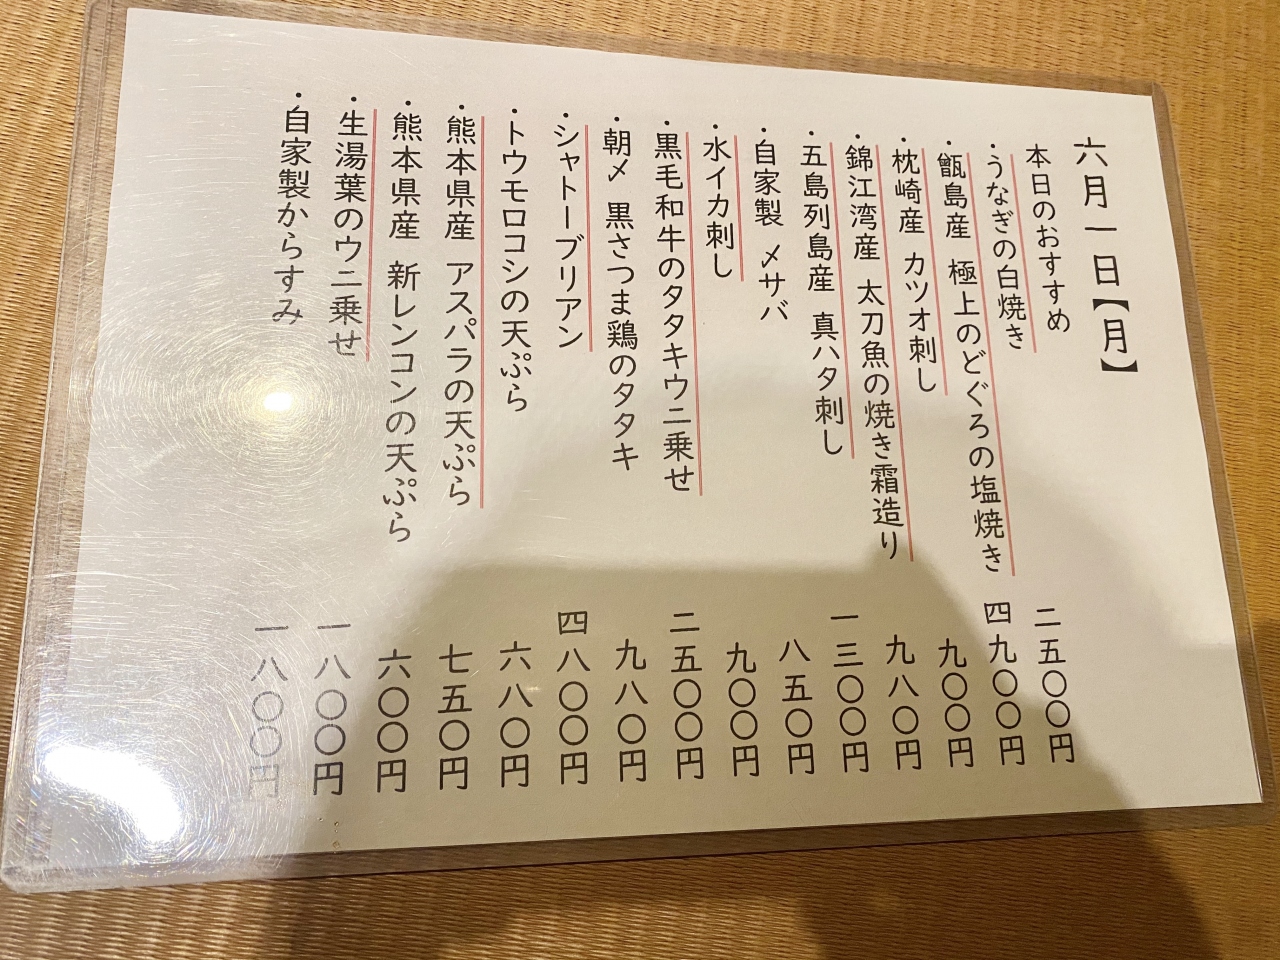 六月一日【月】
本日のおすすめ
・うなぎの白焼き 二五〇〇円
・甑島産 極上のどぐろの塩焼き 四九〇〇円
・枕崎産 カツオ刺し 九〇〇円
・錦江湾産 太刀魚の焼き霜造り 九八〇円
・五島列島産 真ハタ刺し 一三〇〇円
・自家製 〆サバ 八五〇円
・水イカ刺し 九〇〇円
・黒毛和牛のタタキウニ乗せ 二五〇〇円
・朝〆 黒さつま鶏のタタキ 九八〇円
・シャトーブリアン 四八〇〇円
・トウモロコシの天ぷら 六八〇円
・熊本県産 アスパラの天ぷら 七五〇円
・熊本県産 新レンコンの天ぷら 六〇〇円
・生湯葉のウニ乗せ 一八〇〇円
・自家製からすみ 一八〇〇円